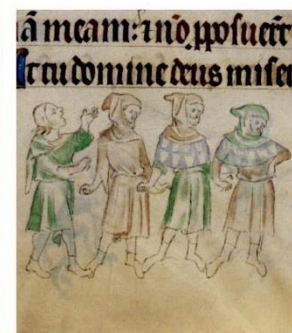 ā meam: ⁊ nō ꝓposuer̄t
Et tu domine deus mise